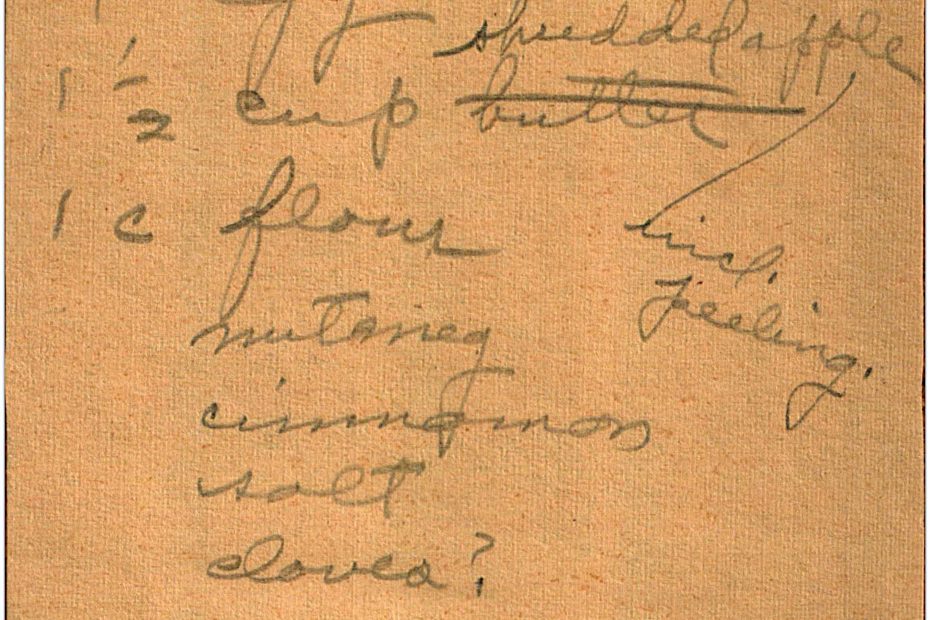 shredded apple
1 1/2 cup butter
1 c flour
incl.
peeling.
nutmeg
cinnamon
salt
cloves?